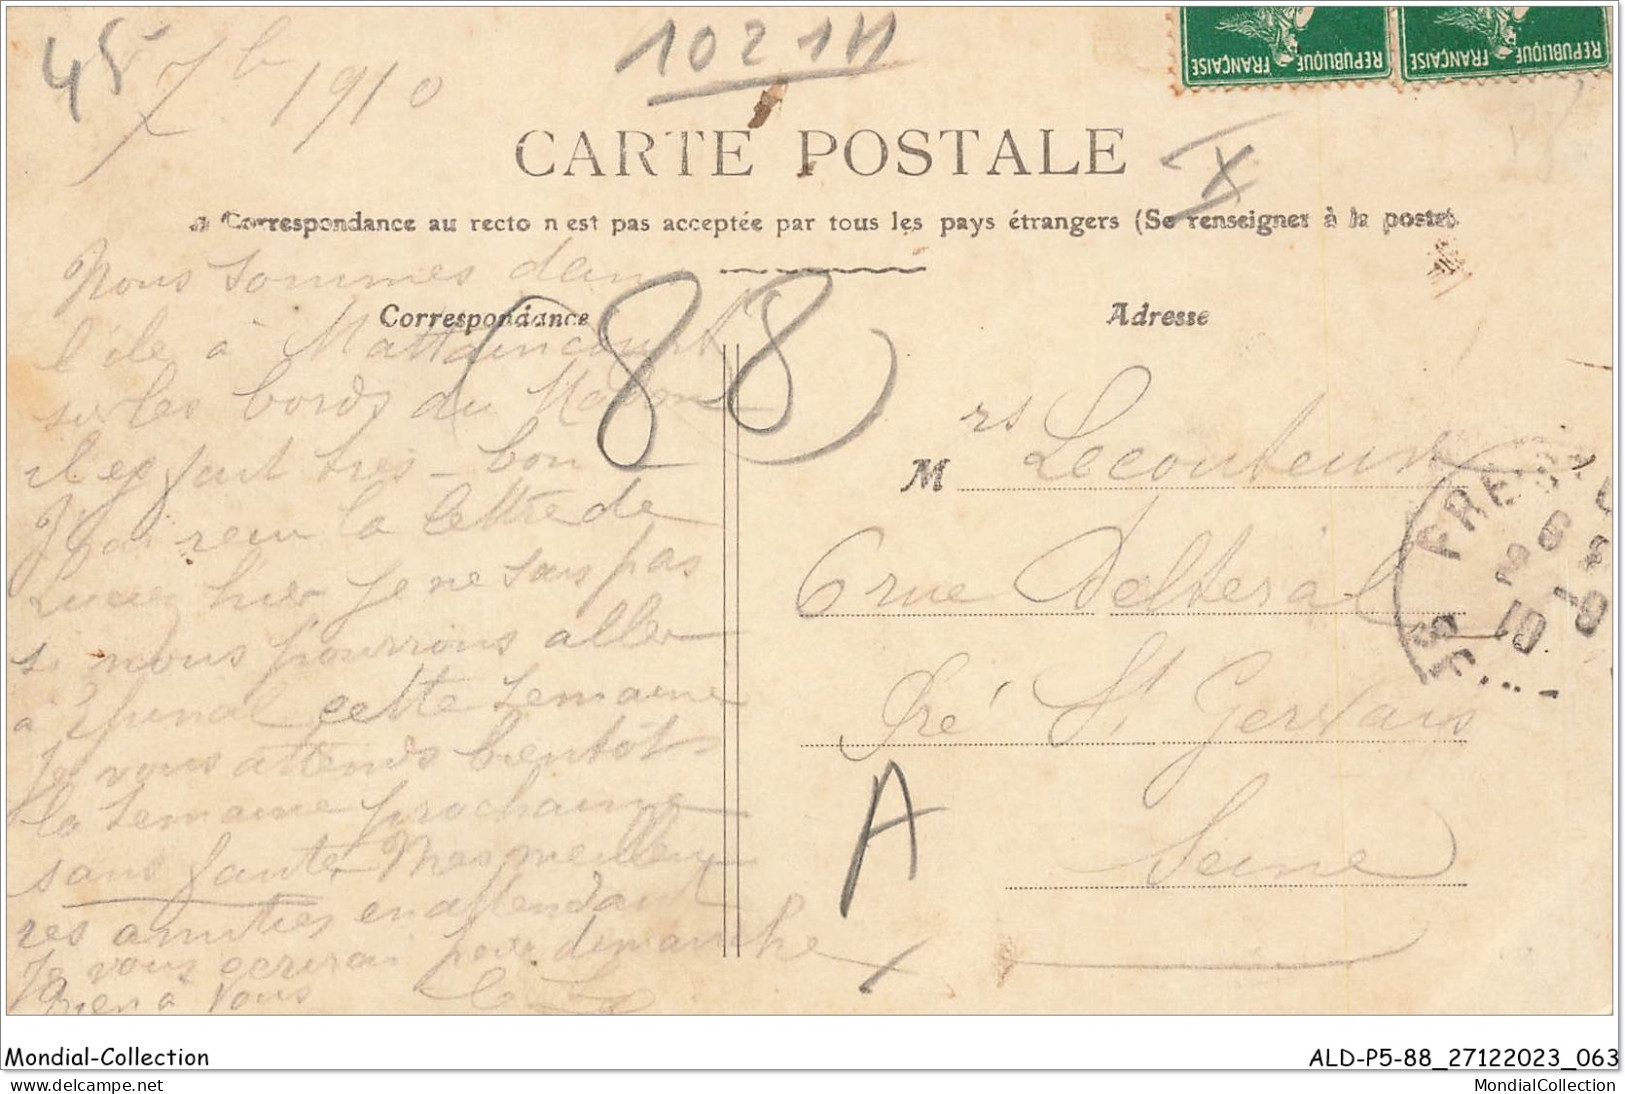 45
7b 1910
1021N
REPUBLIQUE FRANÇAISE
REPUBLIQUE FRANÇAISE
CARTE POSTALE
X
Correspondance au recto n est pas acceptée par tous les pays étrangers (Se renseigner à la poste)
Correspondance
Adresse
(88)
Nous sommes dans
l'île à Mattaincourt
sur les bords du Madon
il y fait très bon
J'ai reçu la lettre de
Lucien hier Je ne sais pas
si nous pourrons aller
à Epinal cette semaine
Je vous attends bientôt
la semaine prochaine
sans faute Mes meilleu
res amitiés en attendant
Je vous ecrirai pour dimanche
Bien à vous
M rs Lecouteux
6 rue Delteral
Pré St Gervais
Seine
A
10
Mondial-Collection
ALD-P5-88_27122023_063
delcampe.net
MondialCollection